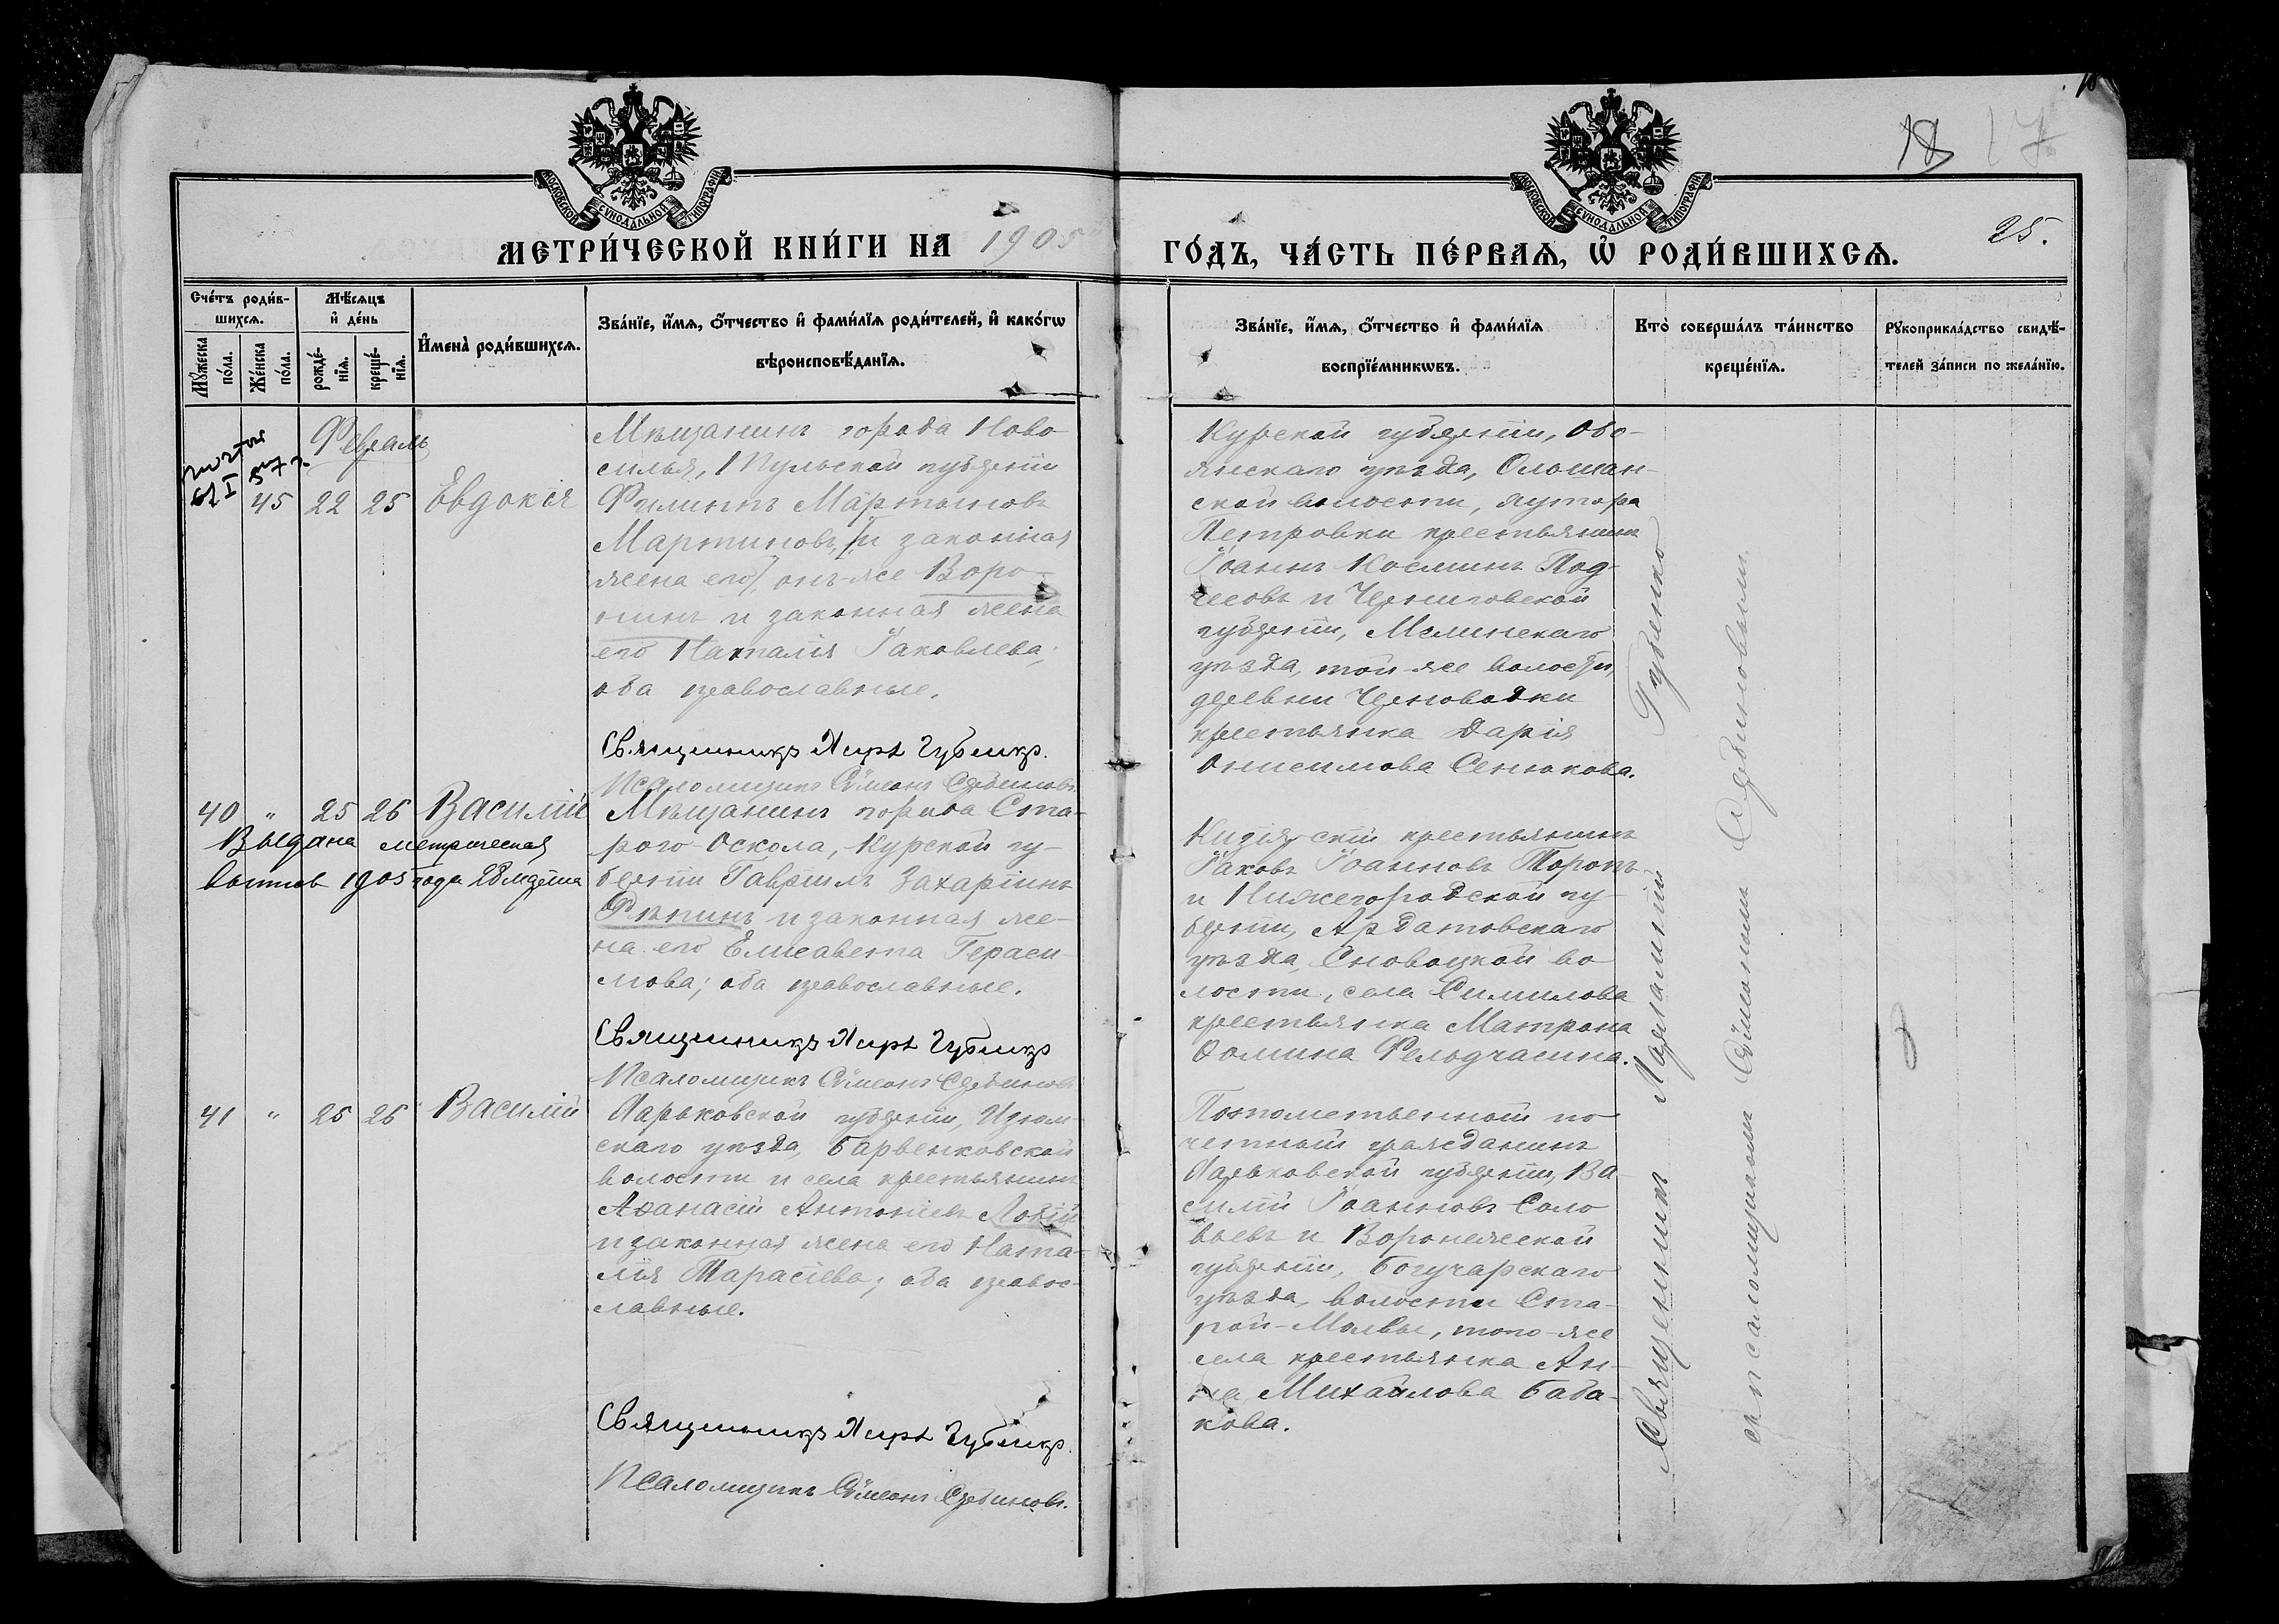 18 17
МОСКОВСКОЙ СУНОДАЛЬНОЙ ТИПОГРАФІИ
МОСКОВСКОЙ СУНОДАЛЬНОЙ ТИПОГРАФІИ
МЕТРИ́ЧЕСКОЙ КНИ́ГИ НА 1905
ГО́ДЪ, ЧА́СТЬ ПЕ́РВАѦ, Ѡ҆ РОДИ́ВШИХСѦ.
25.
Сче́тъ роди́в-
шихсѧ.
Мꙋ́жеска по́ла.
Же́нска по́ла.
Мѣ́сѧцъ
и҆ де́нь
рожде́-нїѧ.
креще́-нїѧ.
И҆мена̀ роди́вшихсѧ.
Зва́нїе, и҆́мѧ, ѻ҆́тчество и҆ фами́лїѧ роди́телей, и҆ како́гѡ
вѣроисповѣ́данїѧ.
Зва́нїе, и҆́мѧ, ѻ҆́тчество и҆ фами́лїѧ
воспрїе́мникѡвъ.
Кто̀ соверша́лъ та́инство
креще́нїѧ.
Рꙋкоприкла́дство свидѣ́-
телей за́писи по жела́нїю.
Февраль
45 22 25 Евдокія
Мѣщанинъ города Ново-
силья, Тульской губерніи
Филиппъ Мартыновъ
Мартиновъ, и законная
жена его, онъ-же Воро-
нинъ и законная жена
его Наталія Іаковлева;
оба православные.
Священникъ Харл. Губенко.
Псаломщикъ Сѵмеонъ
Курской губерніи, Обо-
янскаго уѣзда, Ольшан-
ской волости, хутора
Петровки крестьянинъ
Іоаннъ Косминъ Под-
чесовъ и Черниговской
губерніи, Мглинскаго
уѣзда, той-же волости,
деревни Черноводки
крестьянка Дарія
Онисимова Сенюкова.
40 " 25 26 Василій
Выдана метрическая
выпись 1905 года
Мѣщанинъ города Ста-
раго-Оскола, Курской гу-
берніи Гавріилъ Захаріинъ
Рѣпинъ и законная же-
на его Елисавета Гераси-
мова; оба православные.
Священникъ Харл. Губенко
Псаломщикъ Сѵмеонъ
крестьянинъ
Іаковъ Іоанновъ Моротъ
и Нижегородской гу-
берніи, Ардатовскаго
уѣзда, во-
лости, села
крестьянка Матрона
Ѳомина Фельдчасина.
41 " 25 26 Василій
Харьковской губерніи, Изюм-
скаго уѣзда, Барвенковской
волости и села крестьянинъ
Аѳанасій Антоніевъ
и законная жена его Ната-
лія Тарасіева; оба правос-
лавные.
Священникъ Харл. Губенко.
Псаломщикъ Сѵмеонъ
Потомственный по-
четный гражданинъ
Харьковской губерніи, Ва-
силій Іоанновъ Соло-
вьевъ и Воронежской
губерніи, Богучарскаго
уѣзда, волости Ста-
рой-Мѣловы, того-же
села крестьянка Ан-
на Михайлова Баба-
кова.
Священникъ Харлампій Губенко
съ псаломщикомъ Сѵмеономъ